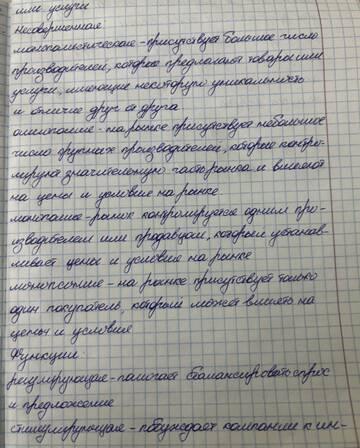 или услуги
несовершенная
монополистическая - присутствует большое число
производителей, которые предлагают товары или
услуги, имеющие некоторую уникальность
и отличие друг от друга
олигополия - на рынке присутствует небольшое
число крупных производителей, которые контро-
лируют значительную часть рынка и влияют
на цены и условия на рынке
монополия - рынок контролируется одним про-
изводителем или продавцом, который устанав-
ливает цены и условия на рынке
монопсония - на рынке присутствует только
один покупатель, который может влиять на
цены и условия
Функции:
регулирующая - помогает балансировать спрос
и предложение
стимулирующая - побуждает компании к ин-